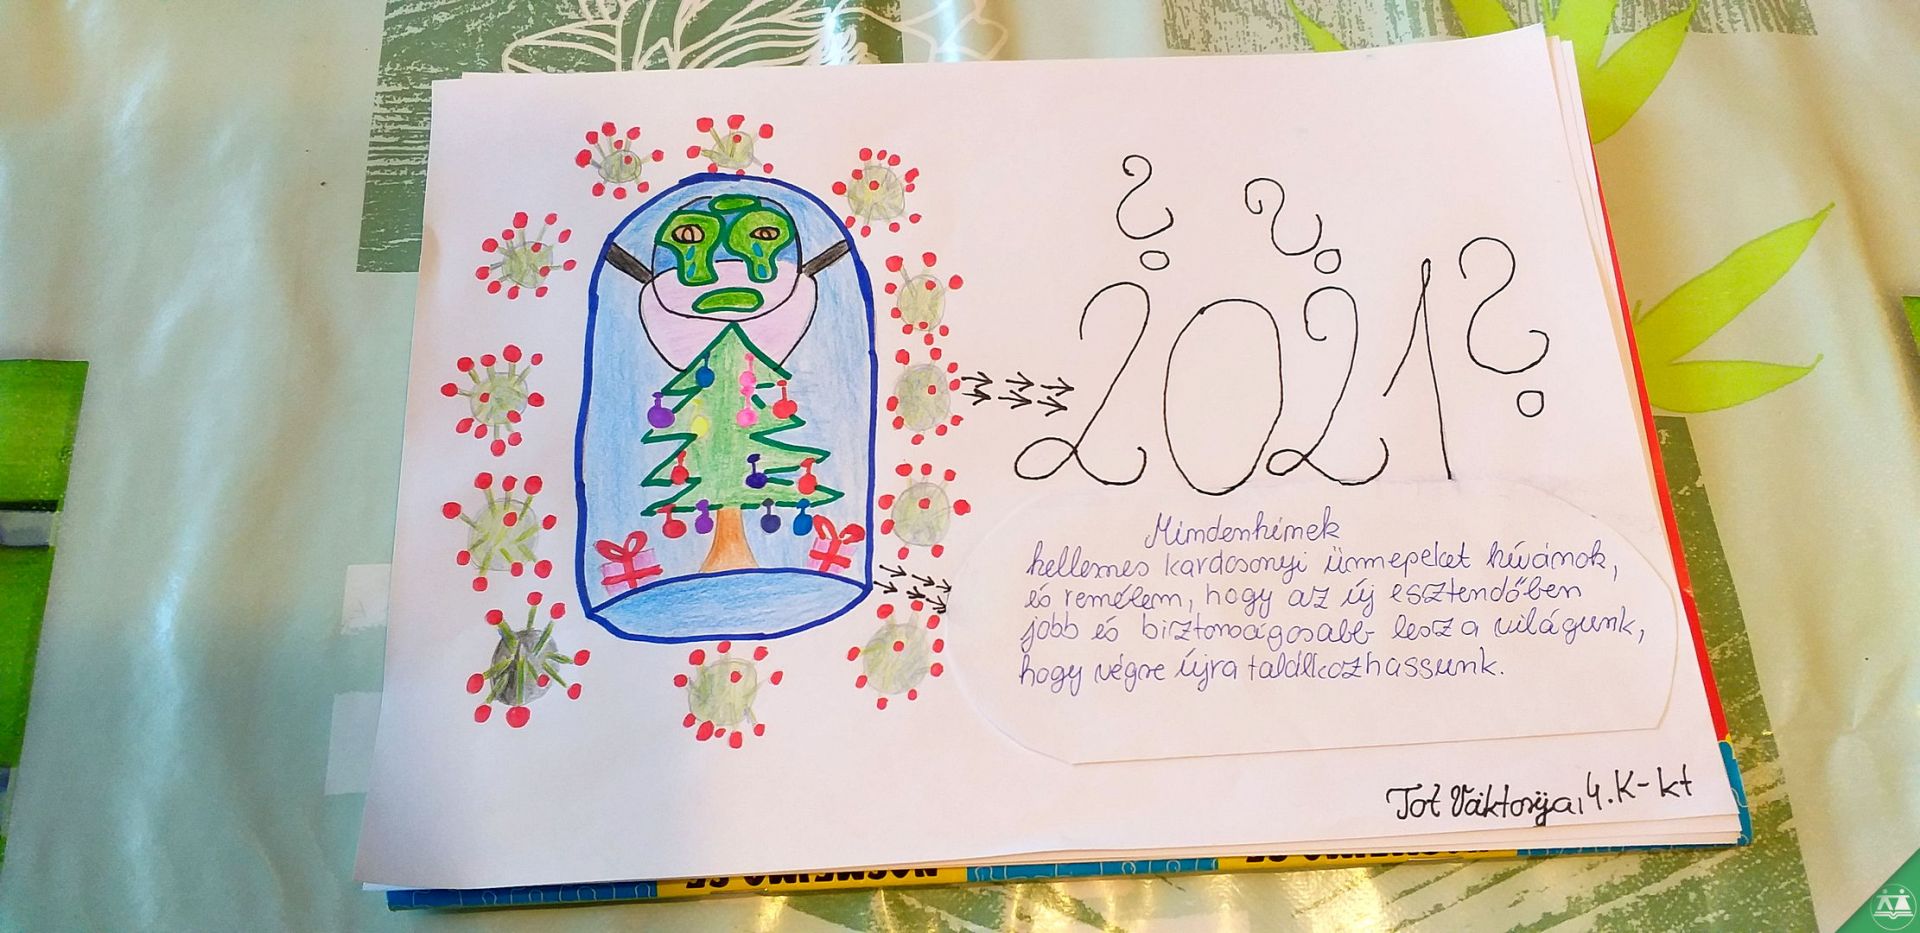 ? ? 
2021?
Mindenkinek
kellemes karácsonyi ünnepeket kívánok,
és remélem, hogy az új esztendőben
jobb és biztonságosabb lesz a világunk,
hogy végre újra találkozhassunk.
Tot Viktorija, 4. K-kt